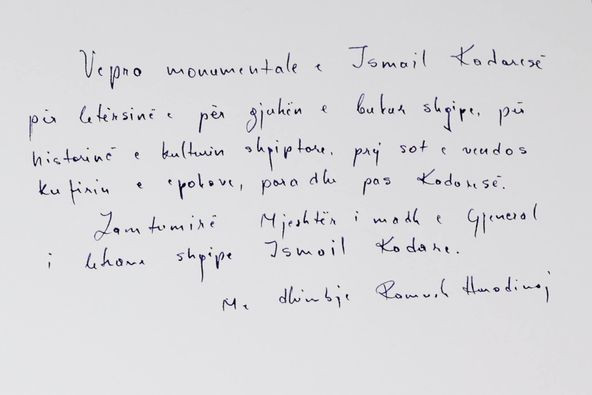 Vepra monumentale e Ismail Kadaresë
për letërsinë e për gjuhën e bukur shqipe, për
historinë e kulturën shqiptare, prej sot e vendos
kufirin e epokave, para dhe pas Kadaresë.
Lamtumirë Mjeshtër i madh e Gjeneral
i letrave shqipe Ismail Kadare.
Me dhimbje Ramush Haradinaj